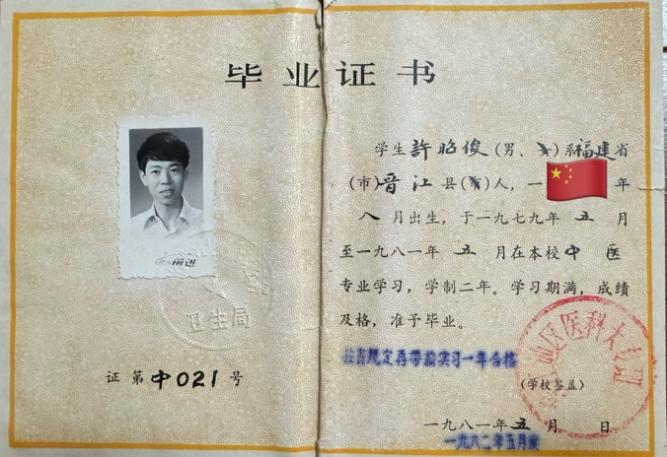 毕业证书
学生許昭俊(男、女)系福建省
(市)晋江县(市)人，一 年
八月出生，于一九七九年五月
至一九八一年五月在本校中医
专业学习，学制二年。学习期满，成绩
及格，准予毕业。
按省规定再带薪实习一年合格
(学校签盖)
一九八一年五月 日
一九八二年五月
前进
卫生局
证第中021号
区医科